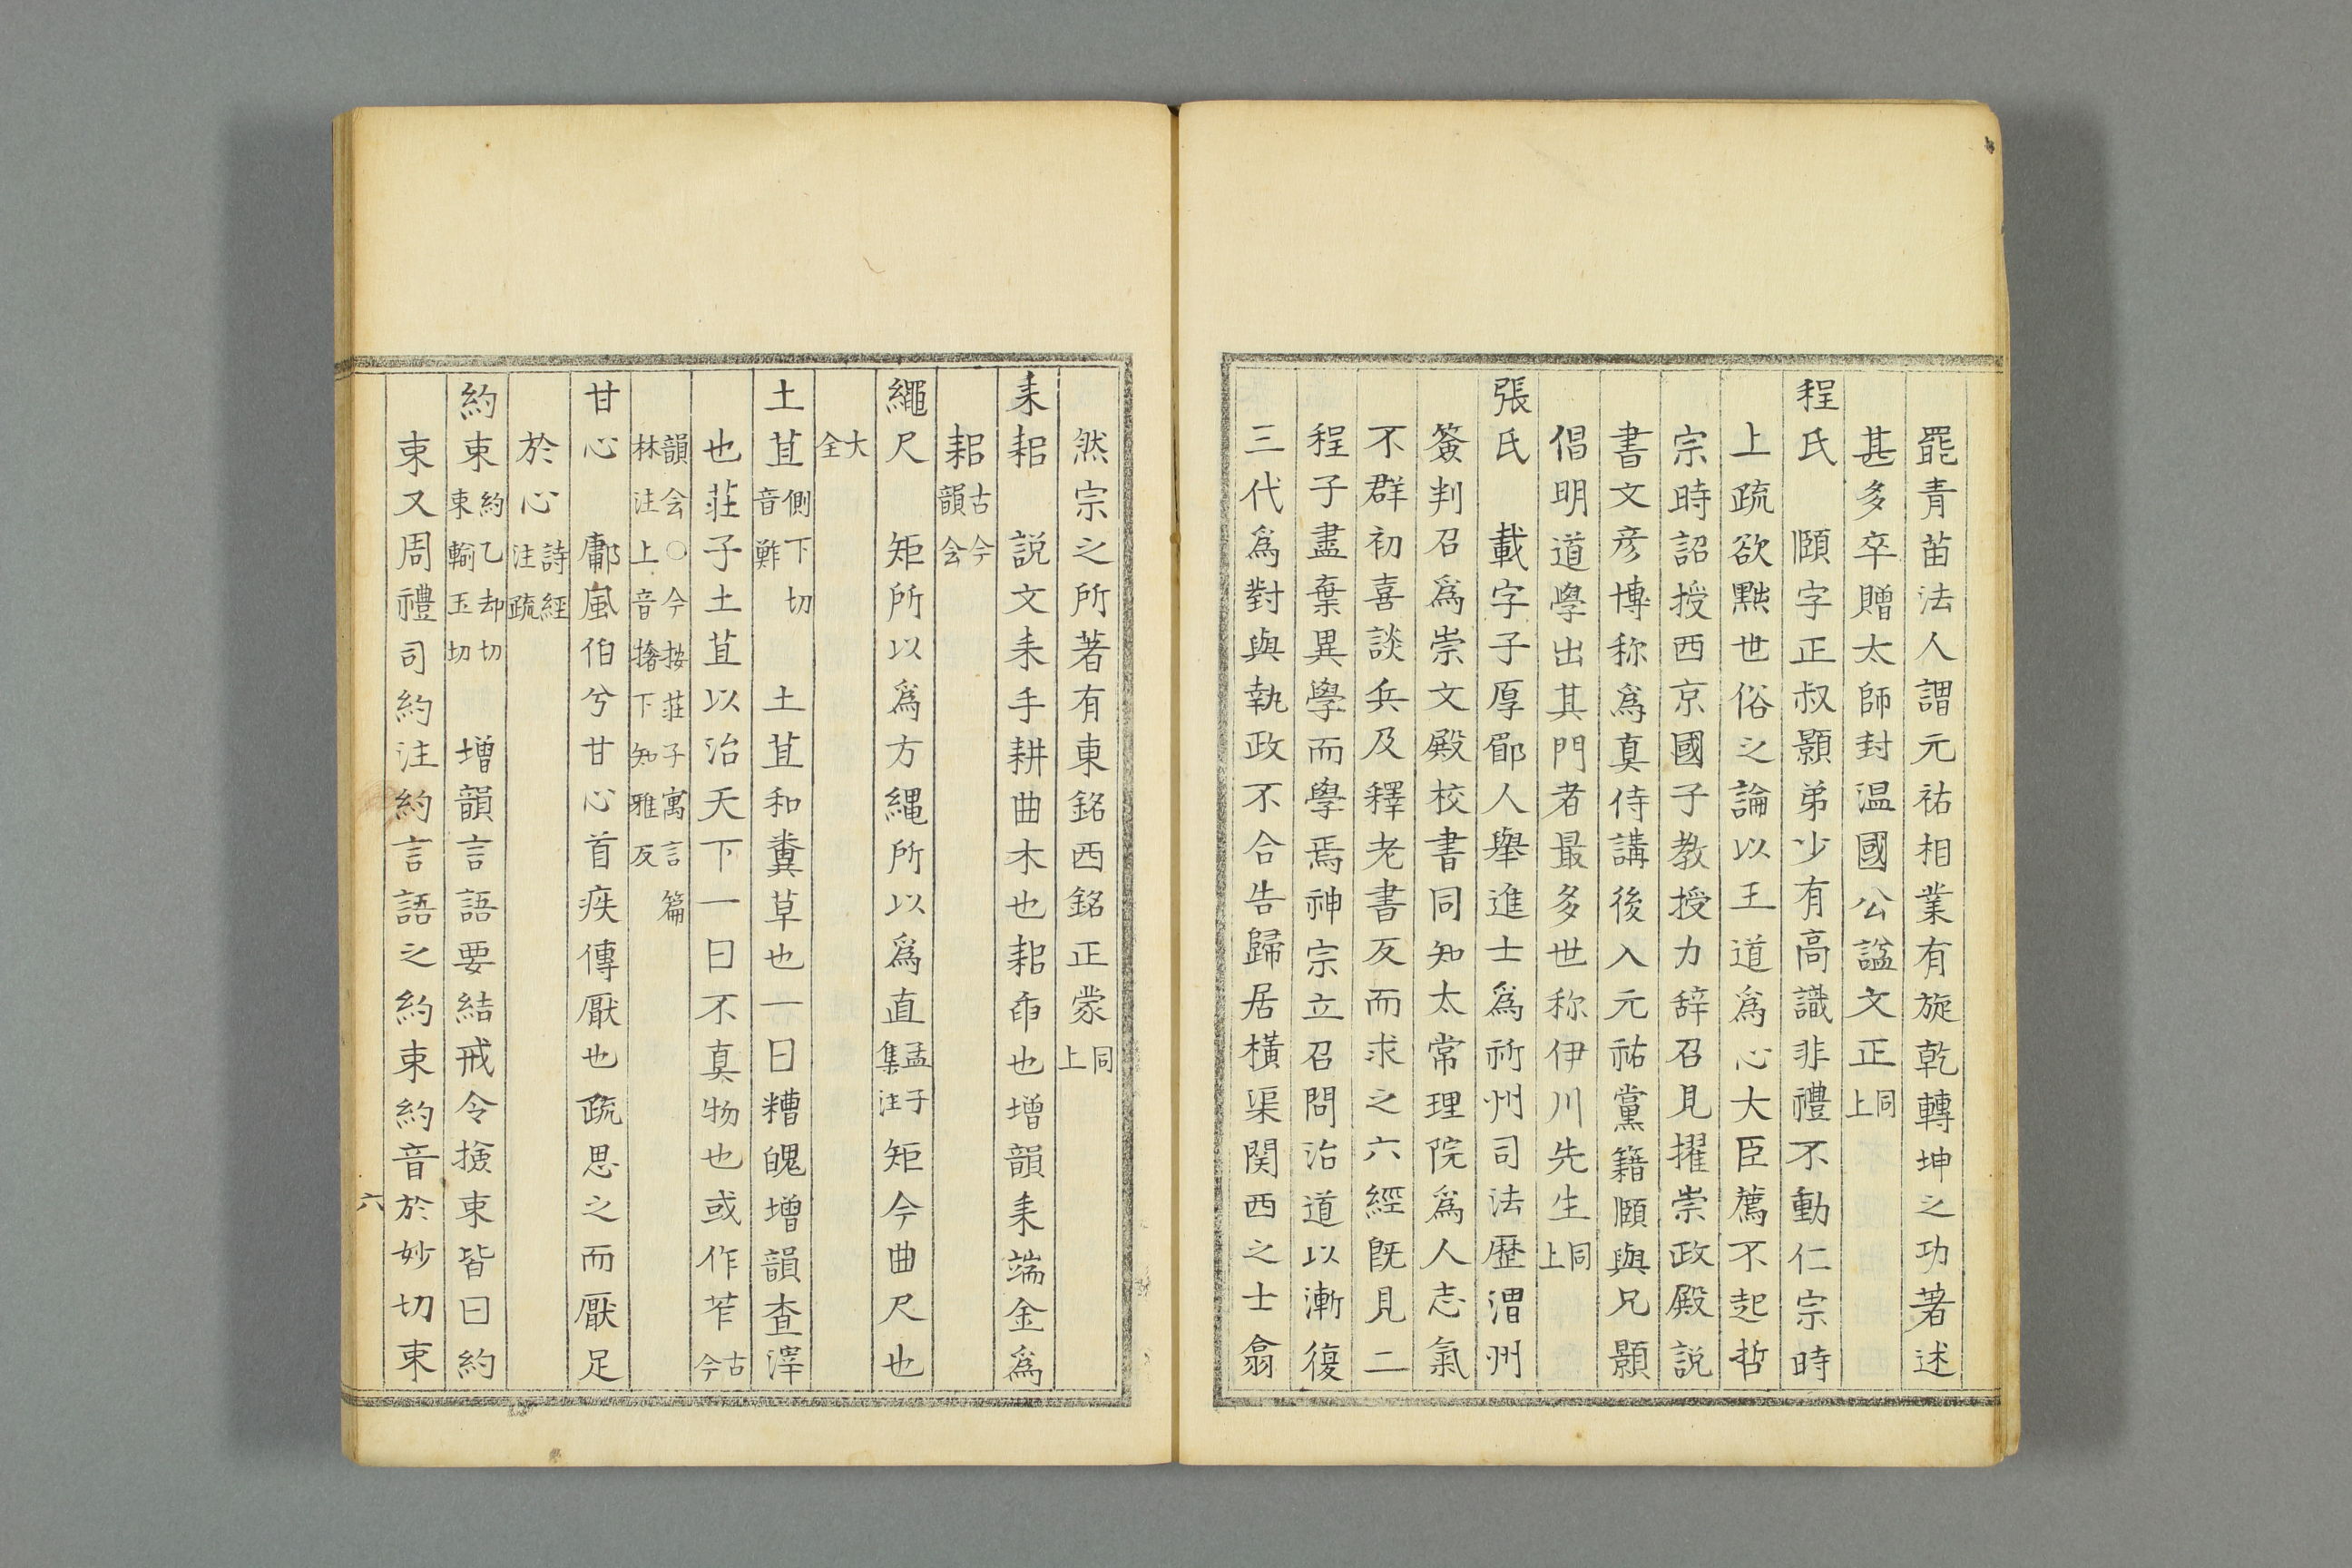 罷青苗法人謂元祐相業有旋乾轉坤之功著述
甚多卒贈太師封温國公謚文正同上
程氏　頤字正叔顥弟少有高識非禮不動仁宗時
上疏欲黜世俗之論以王道爲心大臣薦不起哲
宗時詔授西京國子教授力辞召見擢崇政殿説
書文彦博称爲真侍講後入元祐黨籍頤與兄顥
倡明道學出其門者最多世称伊川先生同上
張氏　載字子厚郿人舉進士爲祈州司法歷渭州
簽判召爲崇文殿校書同知太常理院爲人志氣
不群初喜談兵及釋老書反而求之六經旣見二
程子盡棄異學而學焉神宗立召問治道以漸復
三代爲對與執政不合告歸居橫渠関西之士翕
然宗之所著有東銘西銘正蒙同上
耒耜　説文耒手耕曲木也耜臿也增韻耒端金爲
耜古今韻会
繩尺　矩所以爲方繩所以爲直孟子集注矩今曲尺也
大全
土苴側下切音鮓　土苴和糞草也一曰糟魄增韻查滓
也莊子土苴以治天下一曰不真物也或作苲古今
韻会○今按莊子寓言篇林注上音撦下知雅反
甘心　鄘風伯兮甘心首疾傳厭也疏思之而厭足
於心詩經注疏
約束約乙却切束輸玉切　增韻言語要結戒令撿束皆曰約
束又周禮司約注約言語之約束約音於妙切束
六